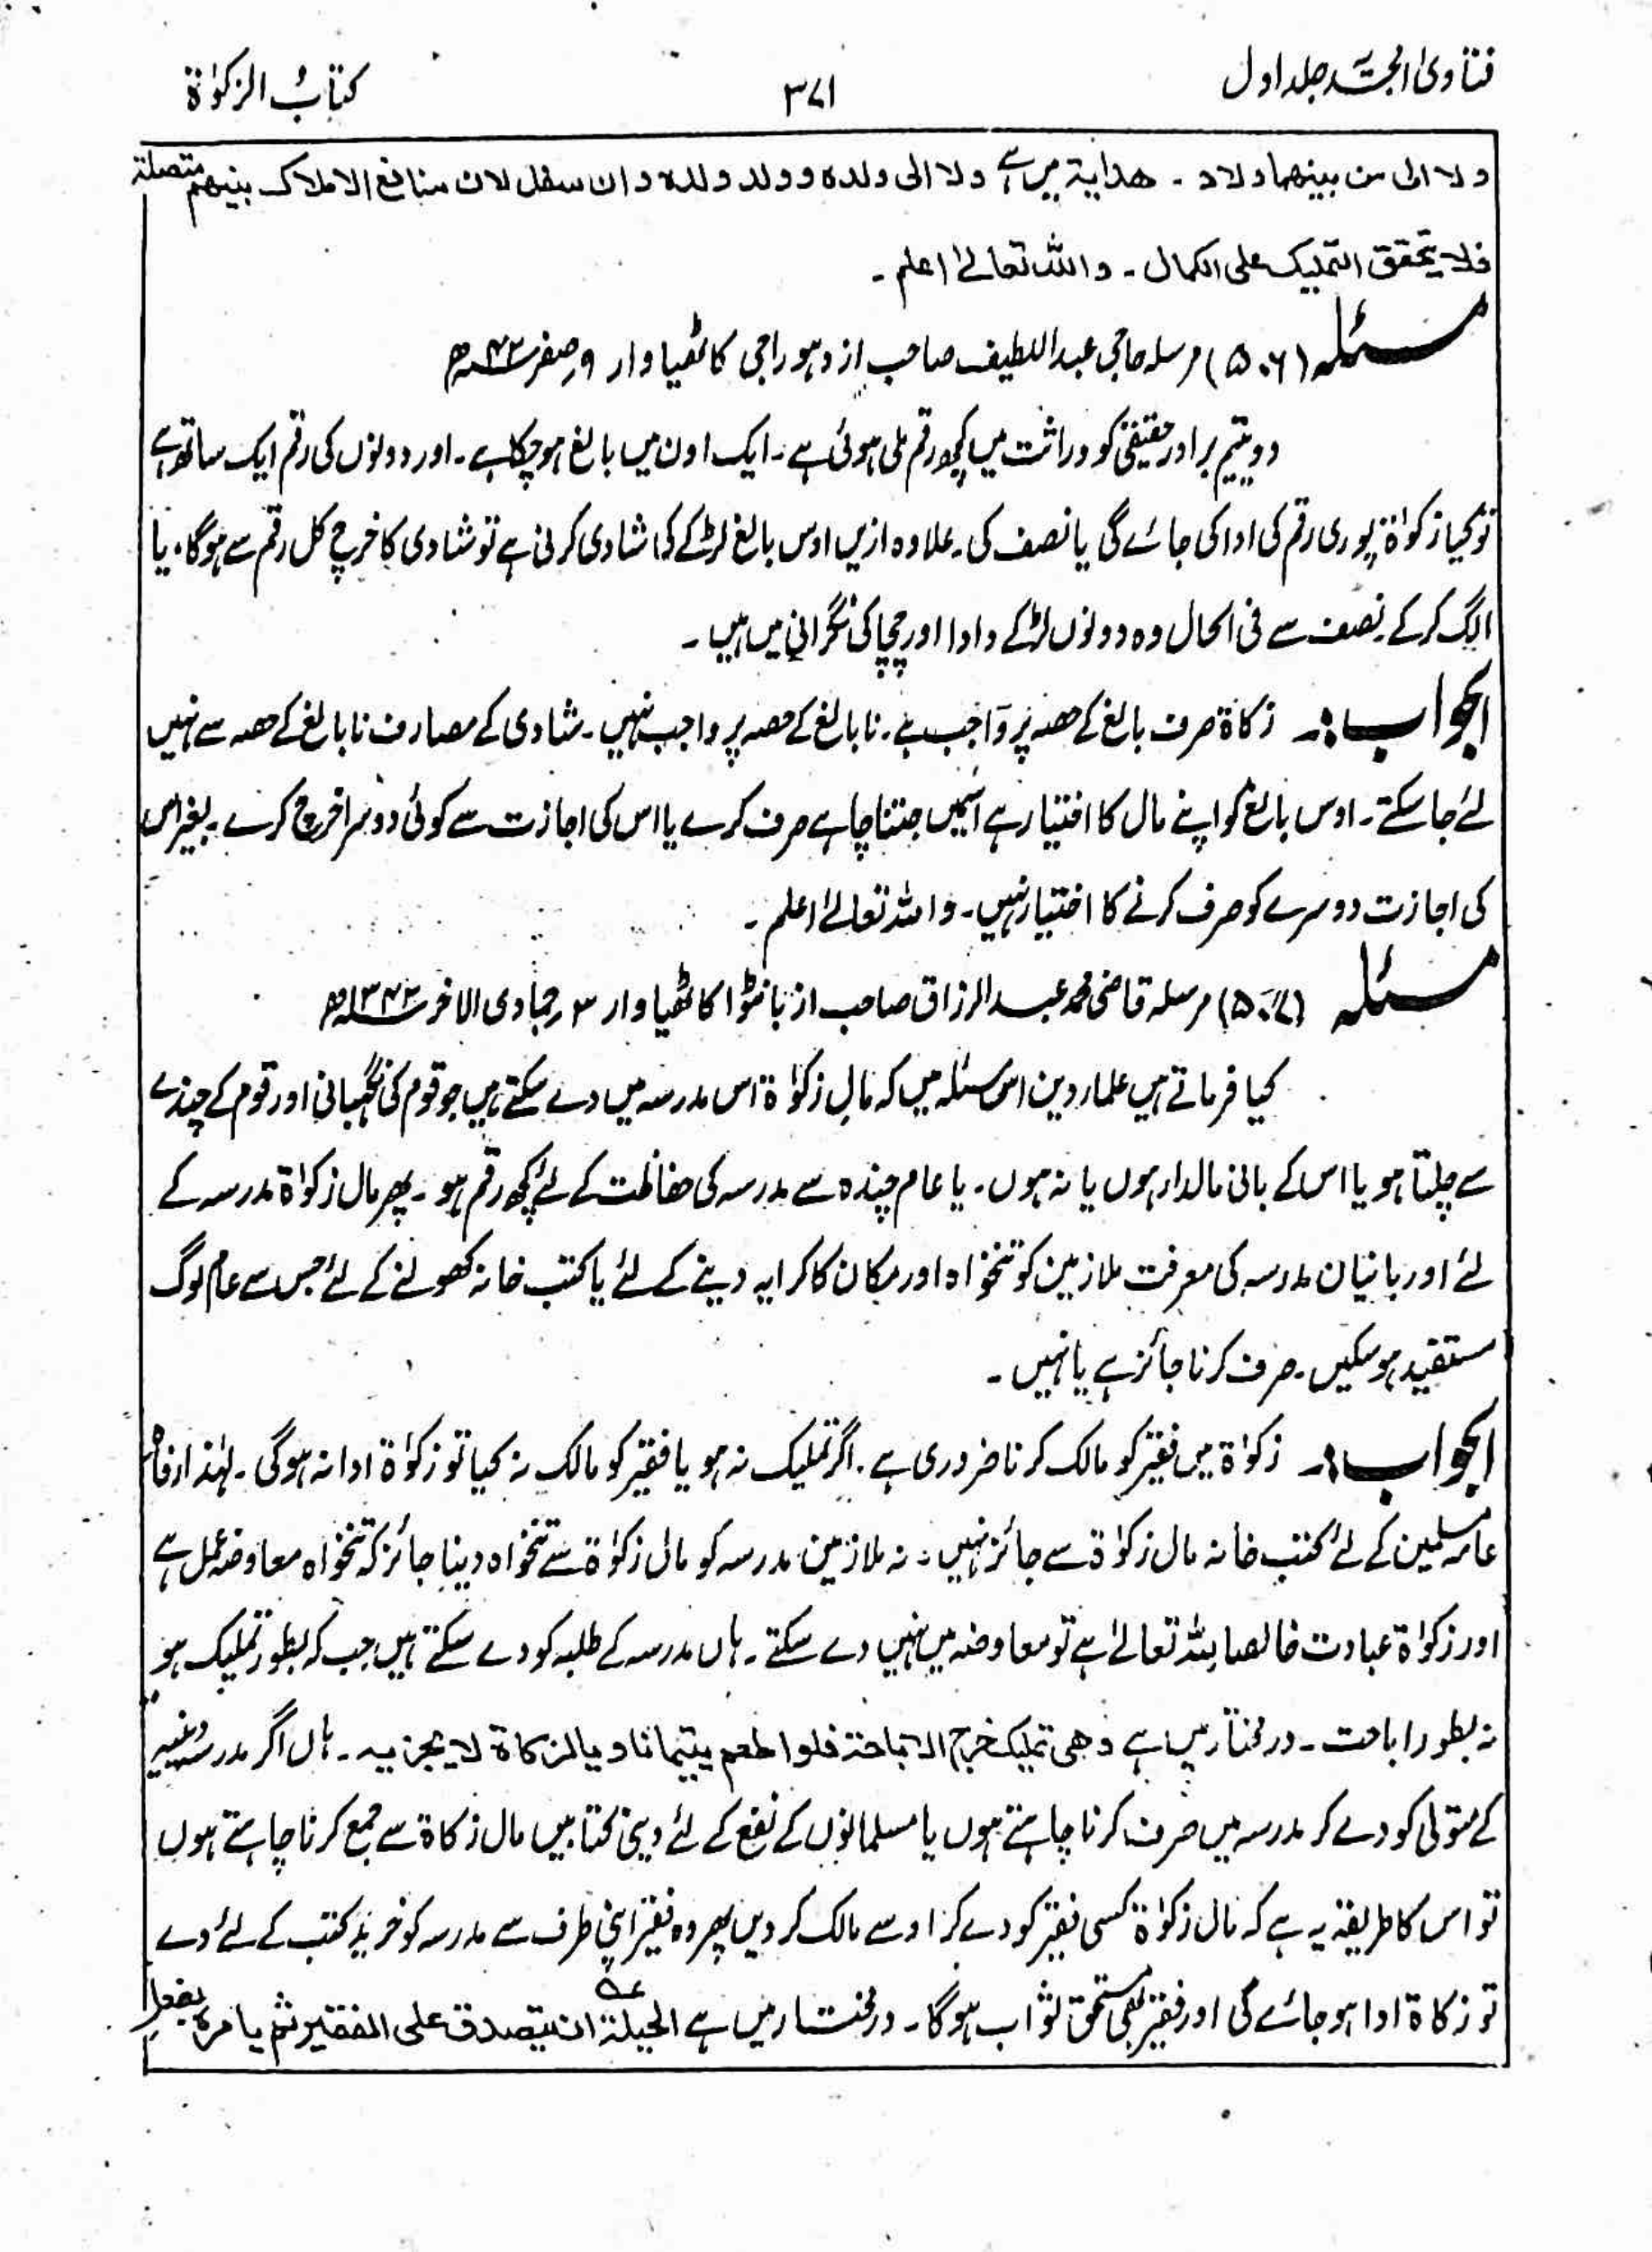 فتاویٰ امجدیہ جلد اول
۳۷۱
کتابُ الزکوٰۃ
ولا الی من بینھما ولاد ۔ ھدایة میں ہے ولا الی ولدہ وولد ولدہ وان سفل لان منافع الاملاک بینھم متصلة
فلا یتحقق التملیک علی الکمال ۔ واللہ تعالیٰ اعلم ۔
مسئلہ (۵۰۶) مرسلہ حاجی عبداللطیف صاحب از دھوراجی کاٹھیاوار ۹ صفر ۴۳ھ
دو یتیم برادر حقیقی کو وراثت میں کچھ رقم ملی ہوئی ہے ۔ ایک اون میں بالغ ہوچکا ہے ۔ اور دونوں کی رقم ایک ساتھ ہے
تو کیا زکوٰۃ پوری رقم کی ادا کی جائے گی یا نصف کی ۔ علاوہ ازیں اوس بالغ لڑکے کی شادی کرنی ہے تو شادی کا خرچ کل رقم سے ہوگا ، یا
الگ کرکے نصف سے فی الحال وہ دونوں لڑکے دادا اور چچا کی نگرانی میں ہیں ۔
الجواب :۔ زکاۃ صرف بالغ کے حصہ پر واجب ہے ۔ نابالغ کے حصہ پر واجب نہیں ۔ شادی کے مصارف نابالغ کے حصہ سے نہیں
لئے جاسکتے ۔ اوس بالغ کو اپنے مال کا اختیار ہے اسمیں جتنا چاہے صرف کرے یا اس کی اجازت سے کوئی دوسرا خرچ کرے ۔ بغیر اس
کی اجازت دوسرے کو صرف کرنے کا اختیار نہیں ۔ واللہ تعالیٰ اعلم ۔
مسئلہ (۵۰۷) مرسلہ قاضی محمد عبدالرزاق صاحب از بانٹوا کاٹھیاوار ۳ جمادی الاخر ۱۳۴۳ھ
کیا فرماتے ہیں علماء دین اس مسئلہ میں کہ مالِ زکوٰۃ اس مدرسہ میں دے سکتے ہیں جو قوم کی نگہبانی اور قوم کے چندے
سے چلتا ہو یا اس کے بانی مالدار ہوں یا نہ ہوں ۔ یا عام چندہ سے مدرسہ کی حفاظت کے لئے کچھ رقم ہو ۔ پھر مال زکوٰۃ مدرسہ کے
لئے اور بانیان مدرسہ کی معرفت ملازمین کو تنخواہ اور مکان کا کرایہ دینے کے لئے یا کتب خانہ کھولنے کے لئے جس سے عام لوگ
مستفید ہوسکیں ۔ صرف کرنا جائز ہے یا نہیں ۔
الجواب :۔ زکوٰۃ میں فقیر کو مالک کرنا ضروری ہے ۔ اگر تملیک نہ ہو یا فقیر کو مالک نہ کیا تو زکوٰۃ ادا نہ ہوگی ۔ لہٰذا رفاہ
عامہ مسلمین کے لئے کتب خانہ مال زکوٰۃ سے جائز نہیں ، نہ ملازمین مدرسہ کو مال زکوٰۃ سے تنخواہ دینا جائز کہ تنخواہ معاوضہ عمل ہے
اور زکوٰۃ عبادت خالصا للہ تعالیٰ ہے تو معاوضہ میں نہیں دے سکتے ۔ ہاں مدرسہ کے طلبہ کو دے سکتے ہیں جب کہ بطور تملیک ہو
نہ بطور اباحت ۔ درمختار میں ہے وھی تملیک خرج الاباحة فلو اطعم یتیما ناویا الزکاة لا یجزیہ ۔ ہاں اگر مدرسہ دینیہ
کے متولی کو دے کر مدرسہ میں صرف کرنا چاہتے ہوں یا مسلمانوں کے نفع کے لئے دینی کتابیں مال زکاۃ سے جمع کرنا چاہتے ہوں
تو اس کا طریقہ یہ ہے کہ مال زکوٰۃ کسی فقیر کو دے کر اوسے مالک کردیں پھر وہ فقیر اپنی طرف سے مدرسہ کو خرید کتب کے لئے دے
تو زکاۃ ادا ہوجائے گی اور فقیر بھی مستحق ثواب ہوگا ۔ درمختار میں ہے الحیلة عہ ان یتصدق علی الفقیر ثم یامرہ بفعل